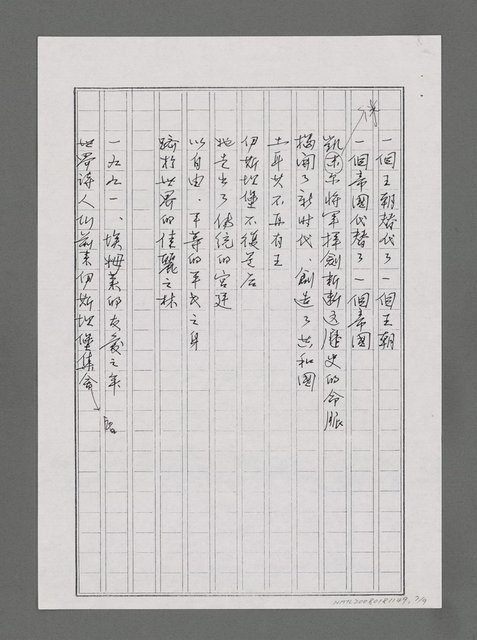 一個王朝替代了一個王朝
一個帝國代替了一個帝國
凱末尔將軍揮劍斬斷这歷史的命脈
揭開了新时代、創造了共和國
土耳其不再有王
伊斯坦堡不復是后
她走出了傳統的宮廷
以自由、平等的平民之身
躋於世界的佳麗之林
一九九一、埃姆萊的友愛之年
世界诗人们前來伊斯坦堡集會
NMTL20080181149, 7/9